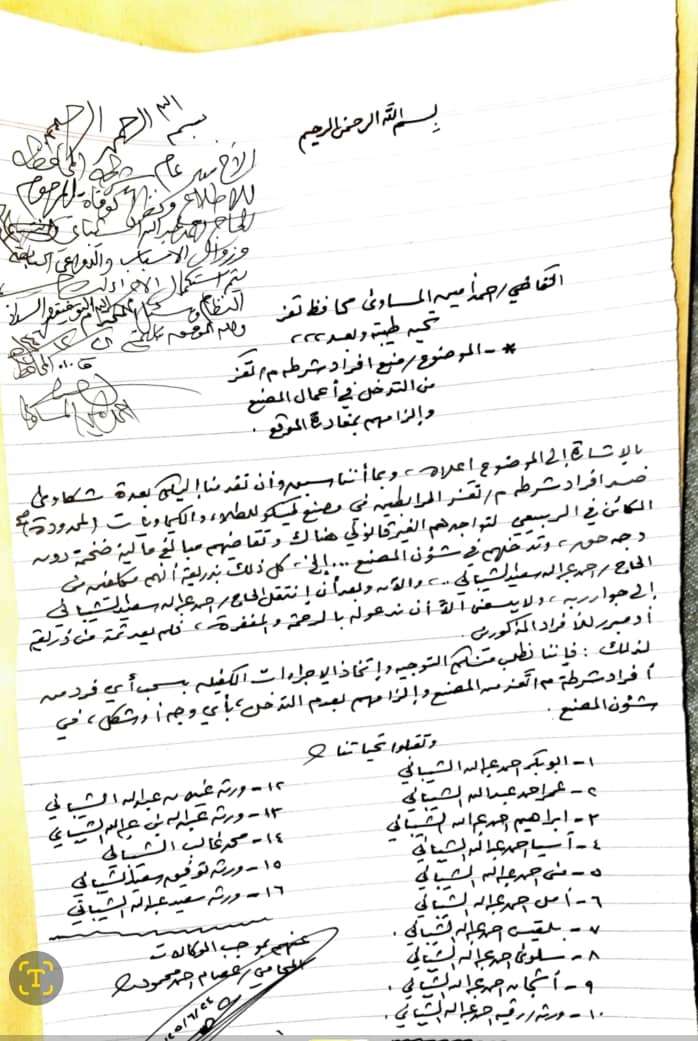 بسم الله الرحمن الرحيم
بسم الله الرحمن الرحيم
الأخ مدير عام شرطة المحافظة
للاطلاع ونظراً لوفاة المرحوم
الحاج احمد عبدالله الشيباني
وزوال الأسباب والدواعي السابقة
يتم استكمال الاجراءات
النظام
القاضي/ احمد أمين المساوى محافظ تعز
تحية طيبة وبعد ،،،
* - الموضوع/ منع افراد شرطه م/ تعز
من التدخل في أعمال المصنع
وإلزامهم بمغادرة الموقع .
بالإشارة إلى الموضوع اعلاه ، وبما أننا سبق وأن تقدمنا إليكم بعدة شكاوى
ضد افراد شرطه م/ تعز المرابطين في مصنع للطلاء والكيماويات (المحدودة)
الكائن في الربيعي لتواجدهم الغير قانوني هناك وتقاضيهم مبالغ مالية ضخمة دون
وجه حق ، وتدخلهم في شؤون المصنع ... إلخ ، كل ذلك بذريعة أنهم مكلفين من
الحاج/ احمد عبدالله سعيد الشيباني .. ، والآن وبعد أن إنتقل الحاج/ احمد عبداله سعيد الشيباني
إلى جوار ربه ، ولا يسعنى الآ أن ندعوله بالرحمة والمغفرة ، فلم يعد ثمة من ذريعة
أو مبرر للأفراد المذكورين .
لذلك : فإننا نطلب منكم التوجيه وإتخاذ الإجراءات الكفيله بسحب أي فرد من
أفراد شرطة م/ تعز من المصنع وإلزامهم بعدم التدخل ، بأي وجه أو شكل ، في
شئون المصنع .
وتقبلوا تحياتنا
١- ابوبكر احمد عبداله الشيباني
٢- عمر احمد عبداله الشيباني
٣- ابراهيم احمد عبداله الشيباني
٤- آسيا احمد عبداله الشيباني
٥- منى احمد عبداله الشيباني
٦- أمل احمد عبداله الشيباني
٧- بلقيس احمد عبداله الشيباني .
٨- سلوى احمد عبداله الشيباني
٩- أشجان احمد عبداله الشيباني .
١٠- ورثه/ رقيه احمد عبداله الشيباني .
١٢- ورثة عبداله الشيباني
١٣- ورثه عبداله الشيباني
١٤- محمد غالب الشيباني
١٥- ورثة توفيق سعيد الشيباني
١٦- ورثه سعيد عبداله الشيباني
عنهم بموجب الوكالات
المحامي/ عصام احمد محمود